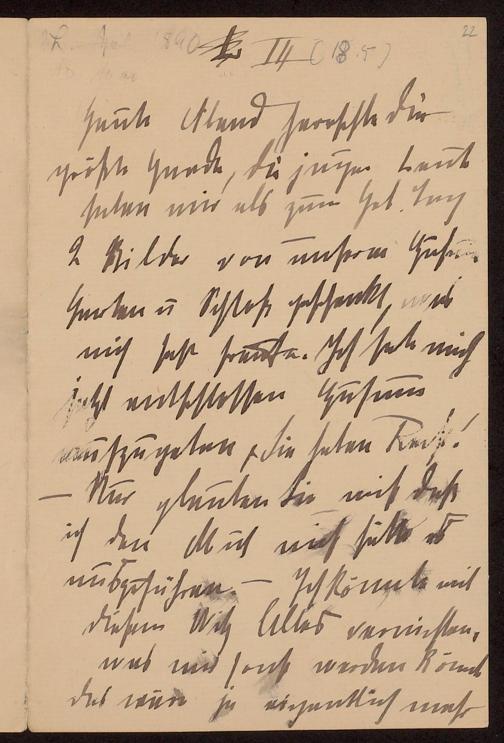 22
1890 III (18.5)
Heute Abend herrschte die
größte Gnade, die jungen Leute
haben mir als zum Geb. Tag
2 Bilder von unserem Husum
Garten u Schloß geschenkt, was
mich sehr freute. Ich habe mich
jetzt entschlossen Husum
aufzugeben, Sie haben Recht!
— Nur glauben Sie nicht daß
ich den Muth nicht hätte es
auszuführen. — Ich könnte mit
diesem Witz Alles vernichten,
was mir sonst werden könnt
das wäre ja eigentlich mehr